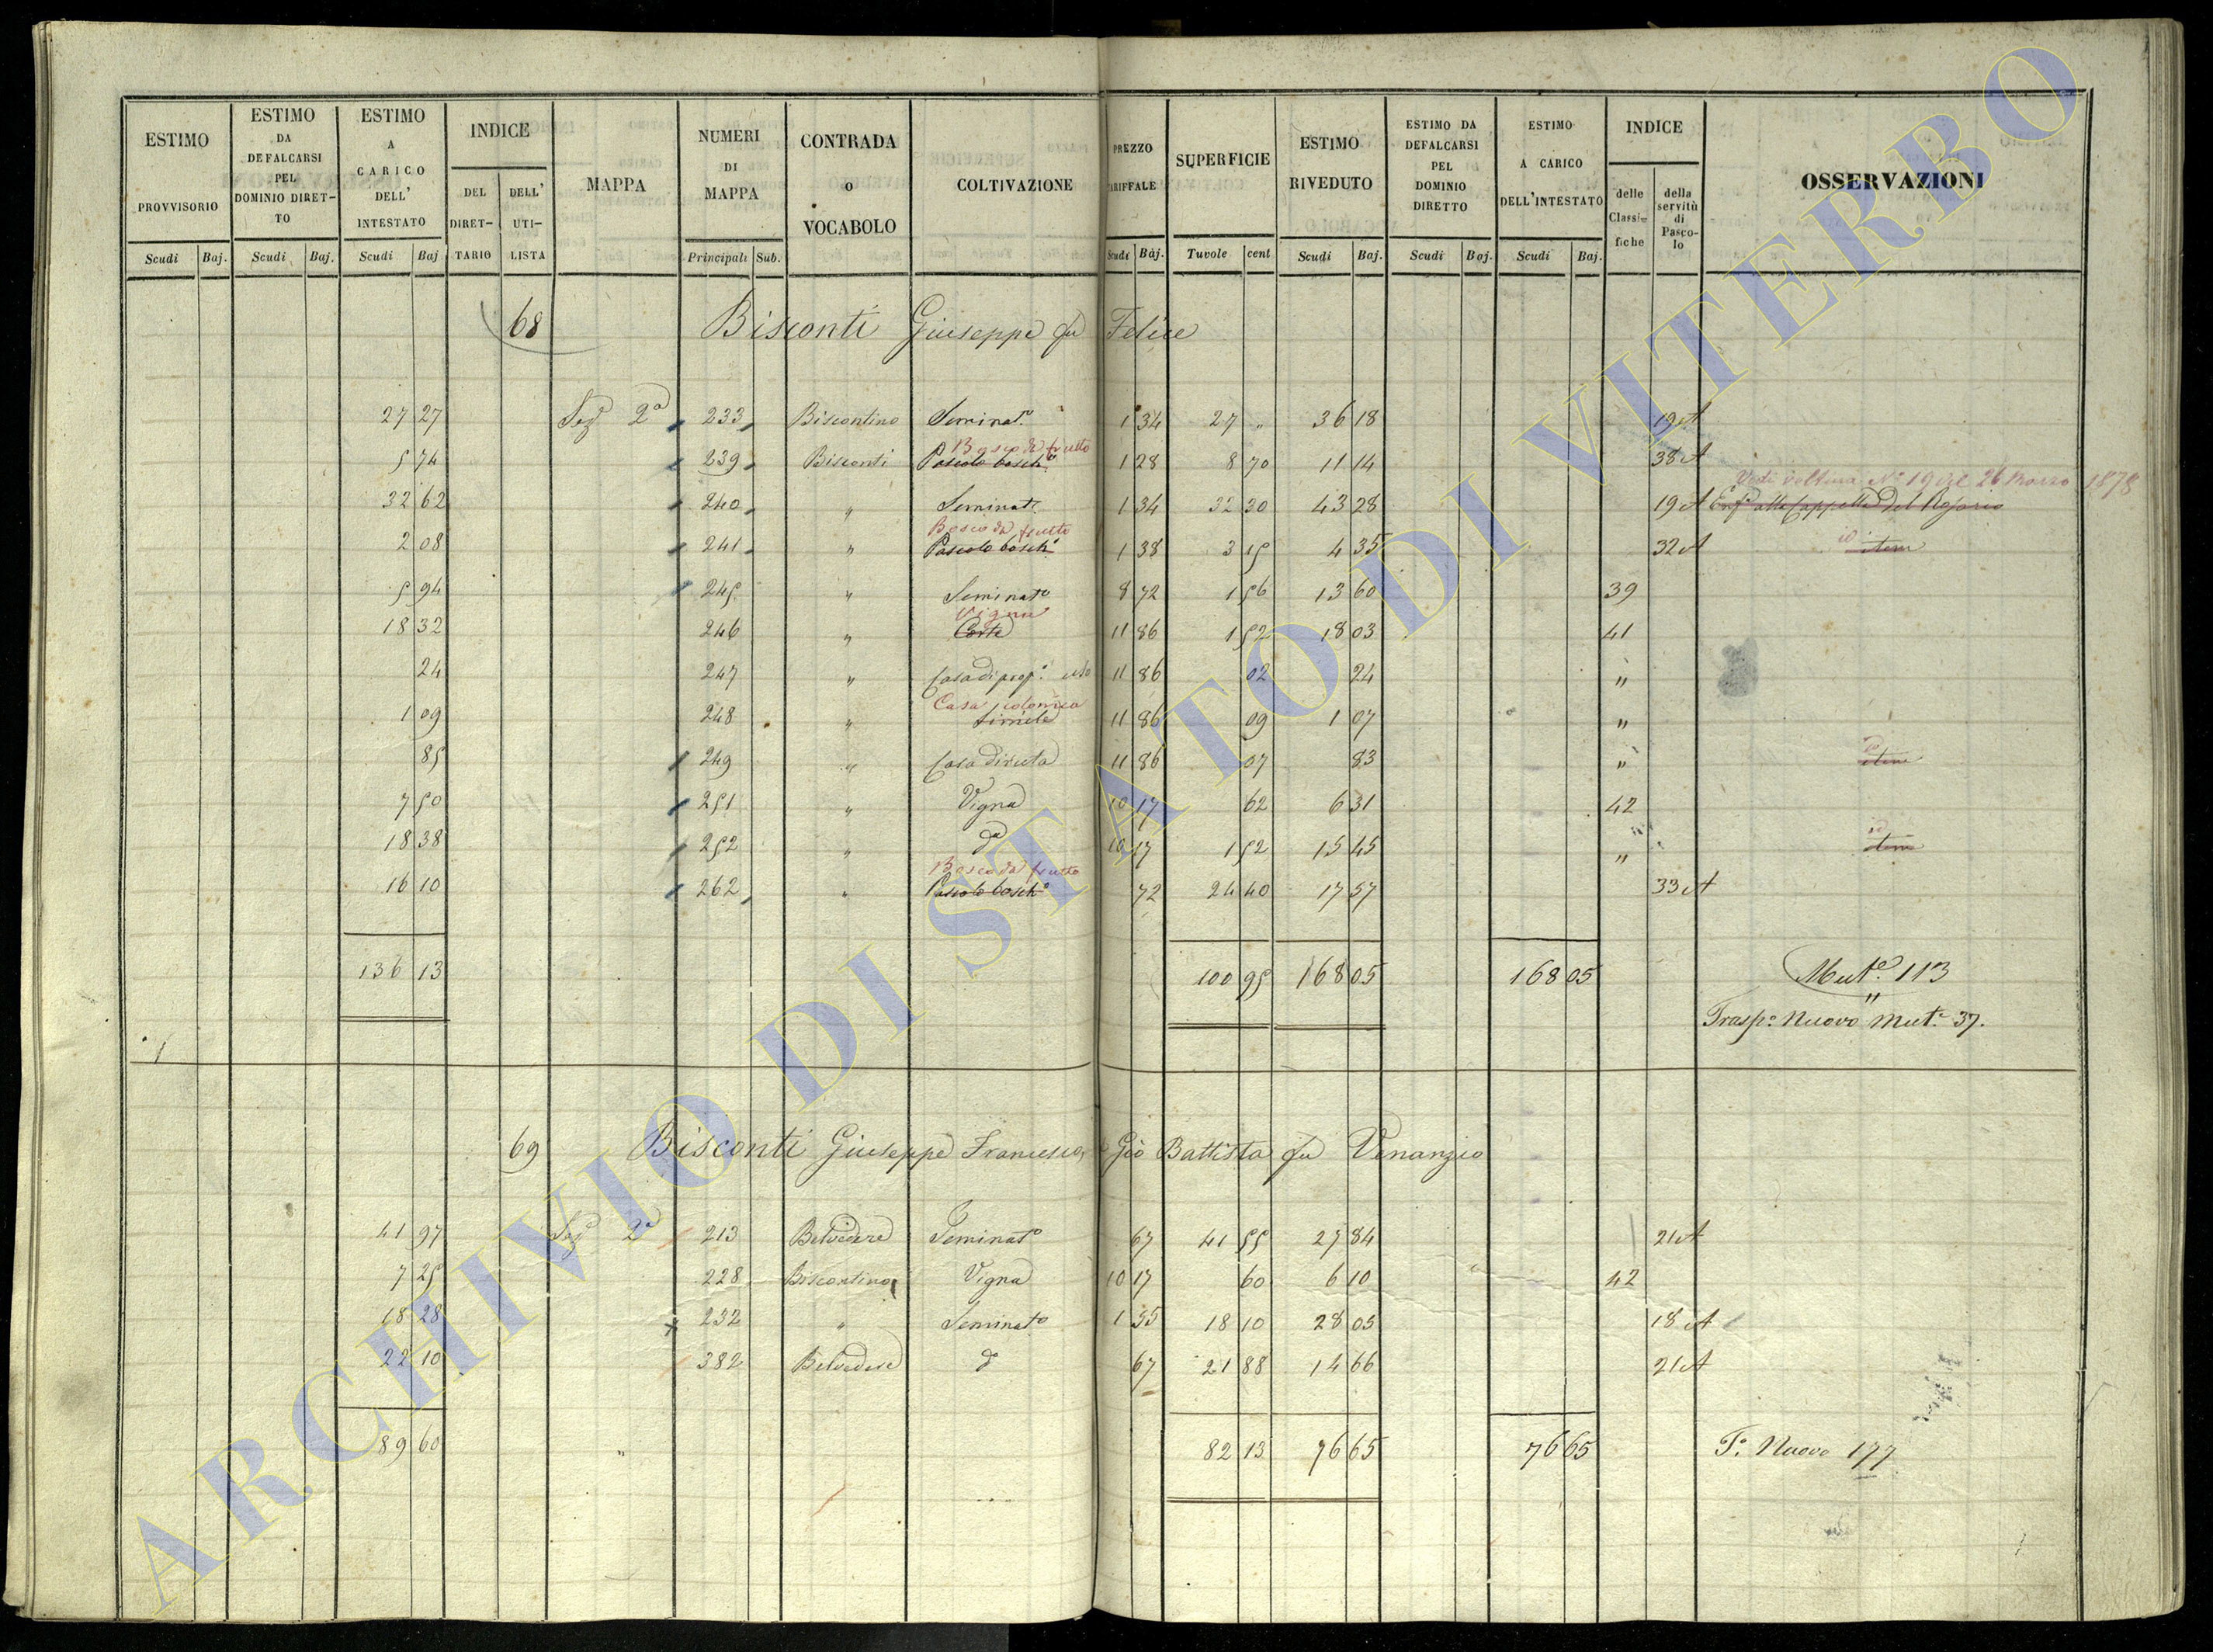 ESTIMO PROVVISORIO Scudi Baj.
ESTIMO DA DEFALCARSI PEL DOMINIO DIRET-TO Scudi Baj.
ESTIMO A CARICO DELL' INTESTATO Scudi Baj
INDICE DEL DIRET-TARIO DELL' UTI-LISTA
MAPPA
NUMERI DI MAPPA Principali Sub.
CONTRADA o VOCABOLO
COLTIVAZIONE
PREZZO TARIFFALE Scudi Baj.
SUPERFICIE Tavole cent
ESTIMO RIVEDUTO Scudi Baj.
ESTIMO DA DEFALCARSI PEL DOMINIO DIRETTO Scudi Baj.
ESTIMO A CARICO DELL'INTESTATO Scudi Baj.
INDICE delle Classi-fiche della servitù di Pasco-lo
OSSERVAZIONI
68 Bisconti Giuseppe fu Felice
27 27 Sez 2ª 233 Biscontino Seminatº 1 34 27 " 36 18 19 A
Bosco da frutto
5 74 239 Bisconti Pascolo boschº 1 28 8 70 11 14 38 A
Vedi Voltura Nº 19 del 26 Marzo 1878
32 62 240 " Seminatº 1 34 32 30 43 28 19 A Enfª alla Cappella del Rosario
Bosco da frutto id
2 08 241 " Pascolo boschº 1 38 3 15 4 35 32 A item
5 94 245 " Seminatº 8 72 1 56 13 60 39
Vigna
18 32 246 " Corte 11 86 1 52 18 03 41
24 247 " Casa di propº uso 11 86 02 24 "
Casa colonica
1 09 248 " simile 11 86 09 1 07 "
id
85 249 " Casa diruta 11 86 07 83 " item
7 50 251 " Vigna 10 17 62 6 31 42
id
18 38 252 " dª 10 17 1 52 15 45 " item
Bosco da frutto
16 10 262 " Pascolo boschº 72 24 40 17 57 33 A
136 13 100 95 168 05 168 05 Mutº 113
"
Traspº Nuovo Mutº 37.
69 Bisconti Giuseppe Francesco, e Giò Battista fu Venanzio
41 97 Sez 2ª 213 Belvedere Seminatº 67 41 55 27 84 21 A
7 25 228 Biscontino Vigna 10 17 60 6 10 42
18 28 232 " Seminatº 1 55 18 10 28 05 18 A
22 10 382 Belvedere dº 67 21 88 14 66 21 A
89 60 " 82 13 76 65 76 65 Tº Nuovo 177
ARCHIVIO DI STATO DI VITERBO